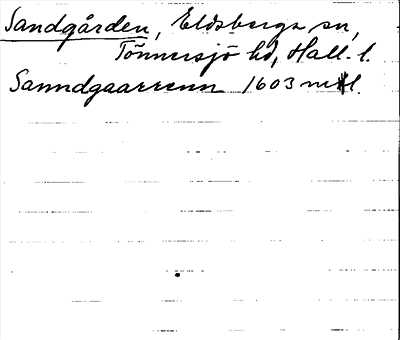 Sandgården, Eldsberga sn,
Tönnersjö hd, Hall. l.
Sanndgaarrenn 1603 mtl.